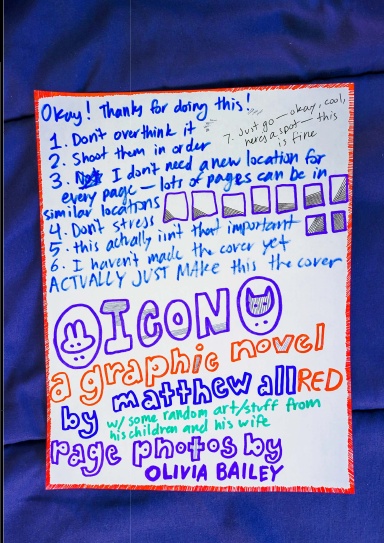 Okay! Thanks for doing this!
1. Don't overthink it
2. Shoot them in order
7. Just go — okay, cool,
here's a spot — this
is fine
3. I don't need a new location for
every page — lots of pages can be in
similar locations
4. Don't stress
5. this actually isn't that important
6. I haven't made the cover yet
ACTUALLY JUST MAKE this the cover
ICON
a graphic novel
by matthew allRED
w/ some random art/stuff from
his children and his wife
page photos by
OLIVIA BAILEY